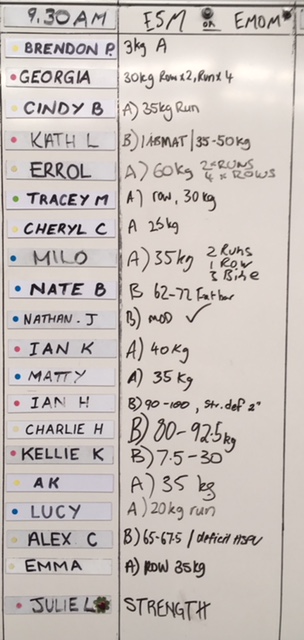 9.30 AM ESM OR EMOM
BRENDON P. 3kg A
GEORGIA 30kg Row x2, Run x 4
CINDY B A) 35kg Run
KATH L B) 1 ABMAT / 35-50kg
ERROL A) 60kg 2 x RUNS
4 x ROWS
TRACEY M A) row, 30kg
CHERYL C A 25kg
MILO A) 35kg 2 Runs
1 Row
3 Bike
NATE B B 62-72 Fat bar
NATHAN. J B) MOD ✓
IAN K A) 40kg
MATTY A) 35 kg
IAN H B) 90-100, Str. def 2"
CHARLIE H B) 80-92.5kg
KELLIE K B) 7.5-30
AK A) 35 kg
LUCY A) 20kg run
ALEX C B) 65-67.5 / deficit HSPU
EMMA A) ROW 35kg
JULIE L STRENGTH